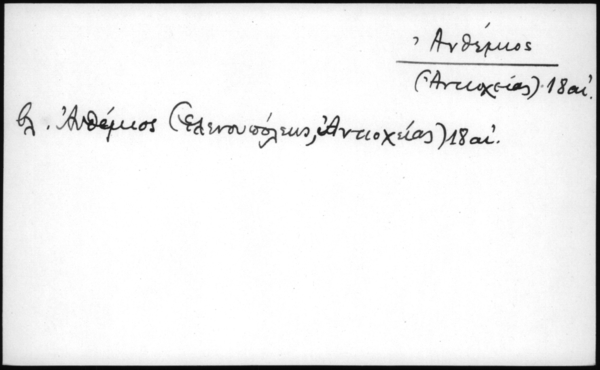 Ἄνθιμος
(Ἀντιοχείας) 18 αἰ.
βλ. Ἄνθιμος (Ἑλενουπόλεως, Ἀντιοχείας) 18 αἰ.